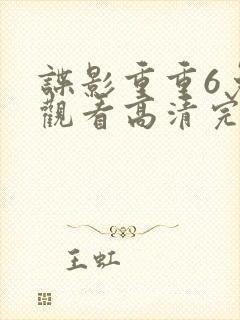 諜影重重6
觀看高清完
王虹